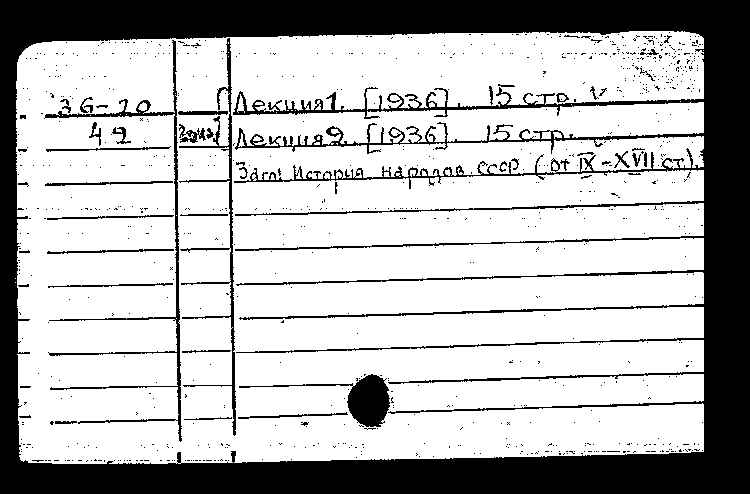 36-10 Лекция 1. [1936]. 15 стр. v
49 Лекция 2. [1936]. 15 стр. v
Загл: История народов СССР. (От IX-XVII ст).